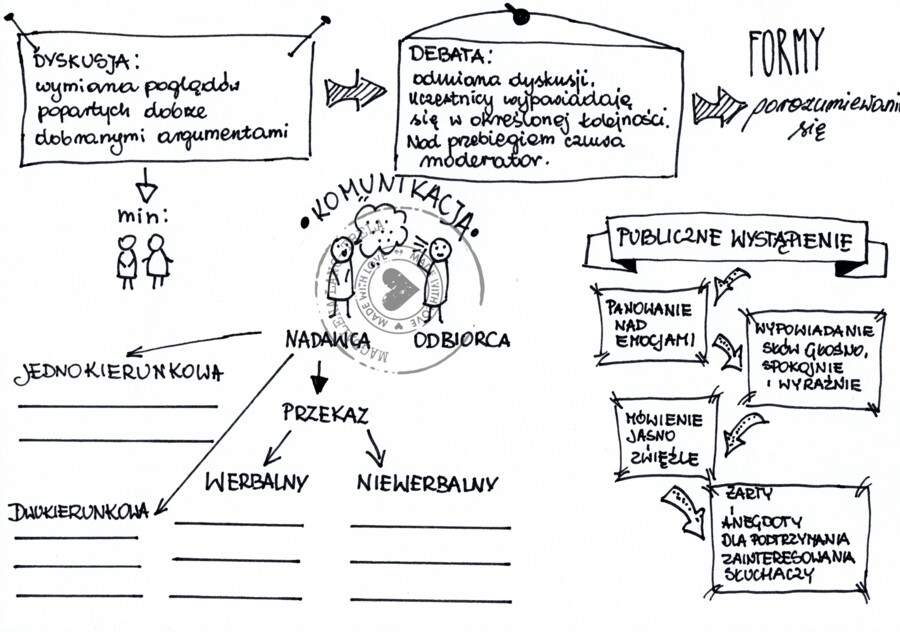 DYSKUSJA:
wymiana poglądów
popartych dobrze
dobranymi argumentami
DEBATA:
odmiana dyskusji.
Uczestnicy wypowiadają
się w określonej kolejności.
Nad przebiegiem czuwa
moderator.
FORMY
porozumiewani
się
min:
KOMUNIKACJA
MADE WITH LOVE
NADAWCA
ODBIORCA
JEDNOKIERUNKOWA
PRZEKAZ
WERBALNY
NIEWERBALNY
DWUKIERUNKOWA
PUBLICZNE WYSTĄPIENIE
PANOWANIE
NAD
EMOCJAMI
WYPOWIADANIE
SŁÓW GŁOŚNO,
SPOKOJNIE
I WYRAŹNIE
MÓWIENIE
JASNO
I
ZWIĘŹLE
ŻARTY
I
ANEGDOTY
DLA PODTRZYMANIA
ZAINTERESOWANIA
SŁUCHACZY